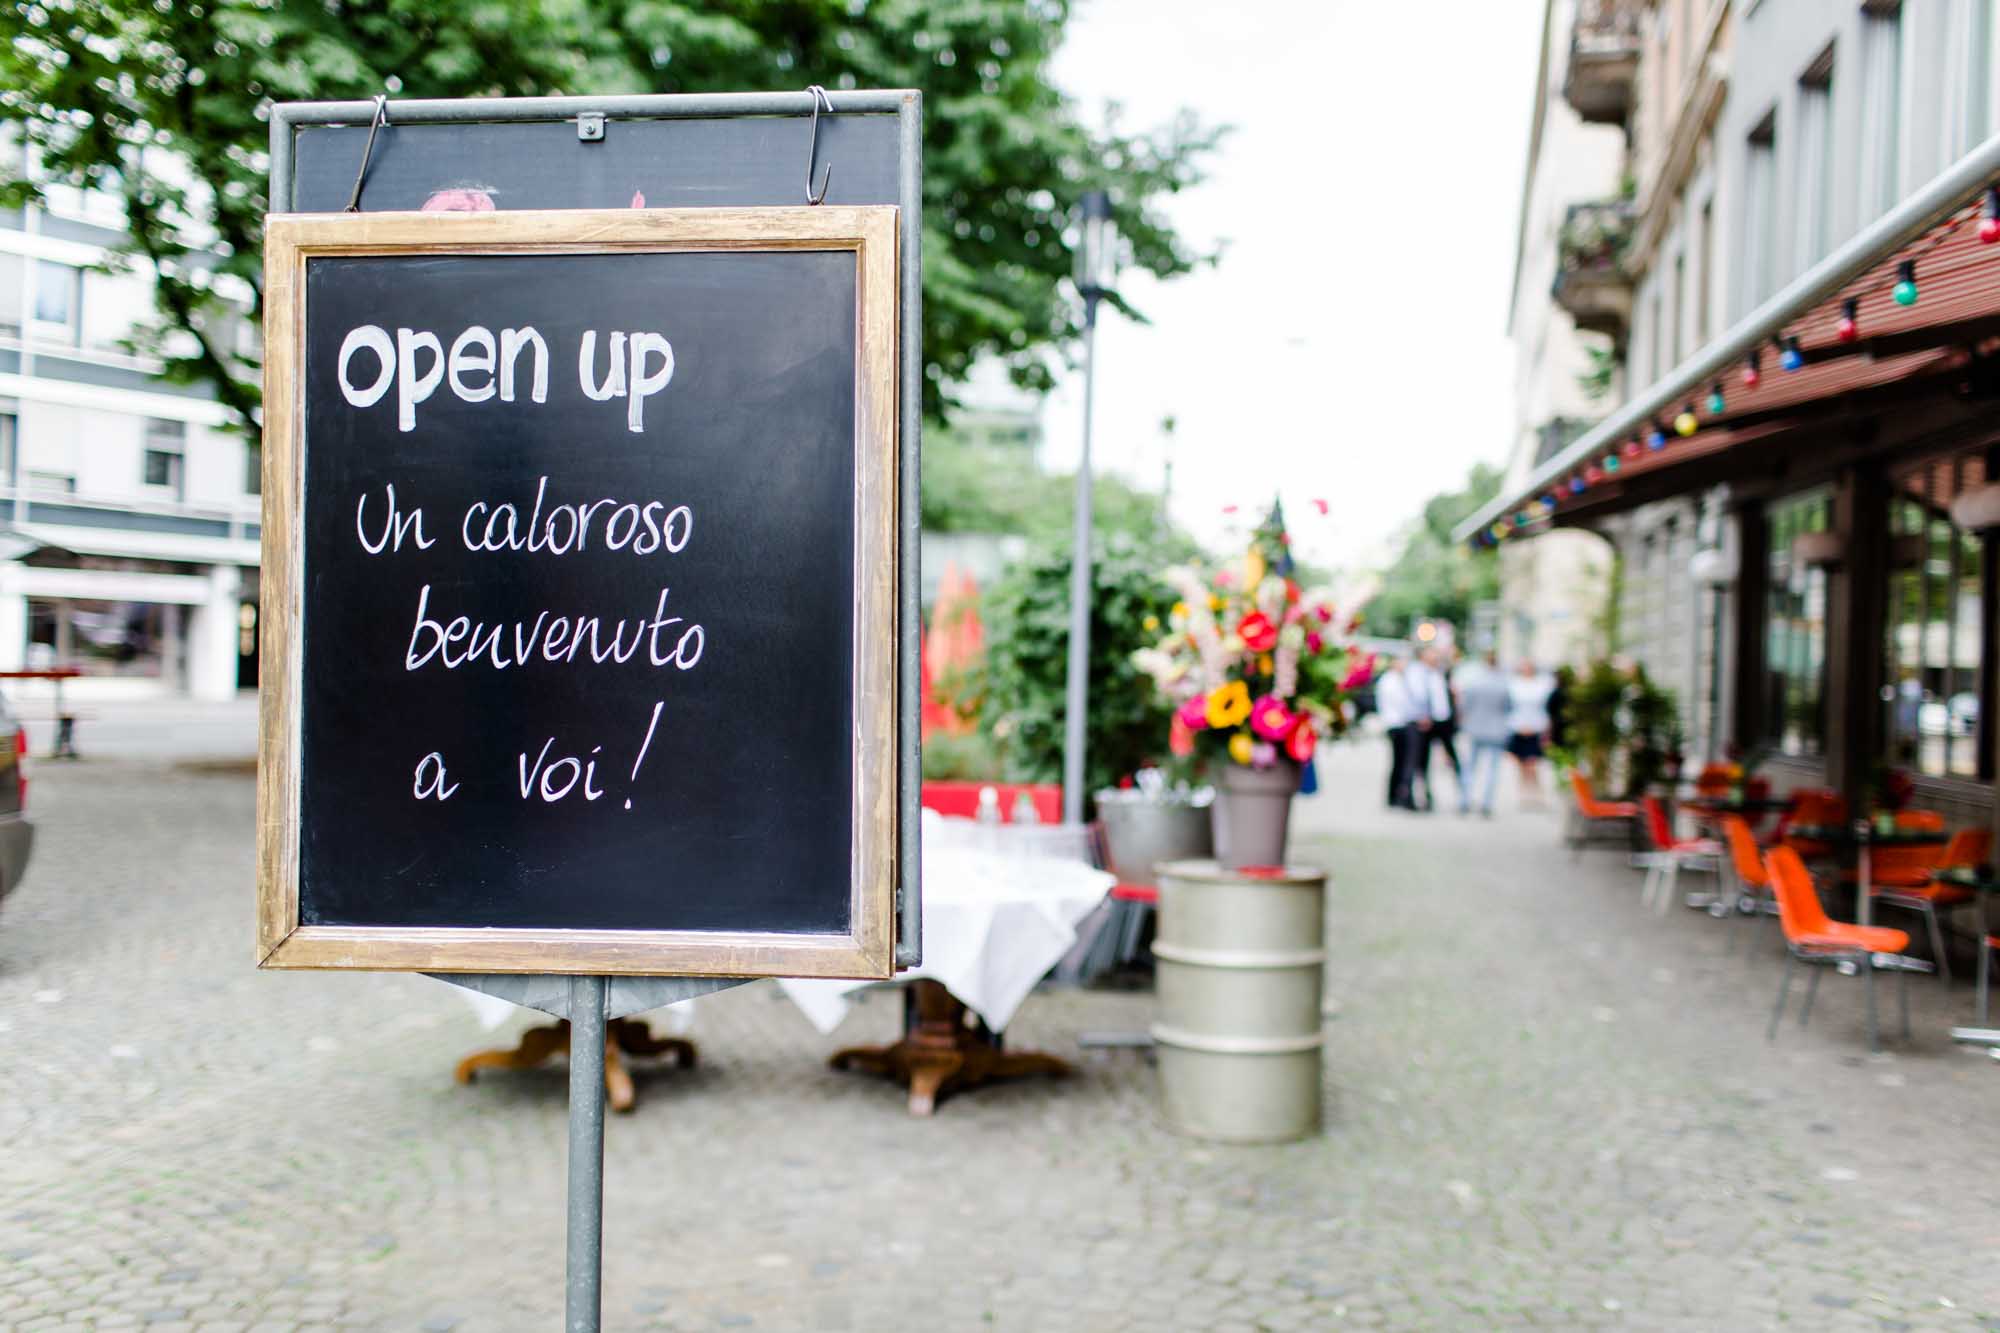 open up
Un caloroso
benvenuto
a voi!